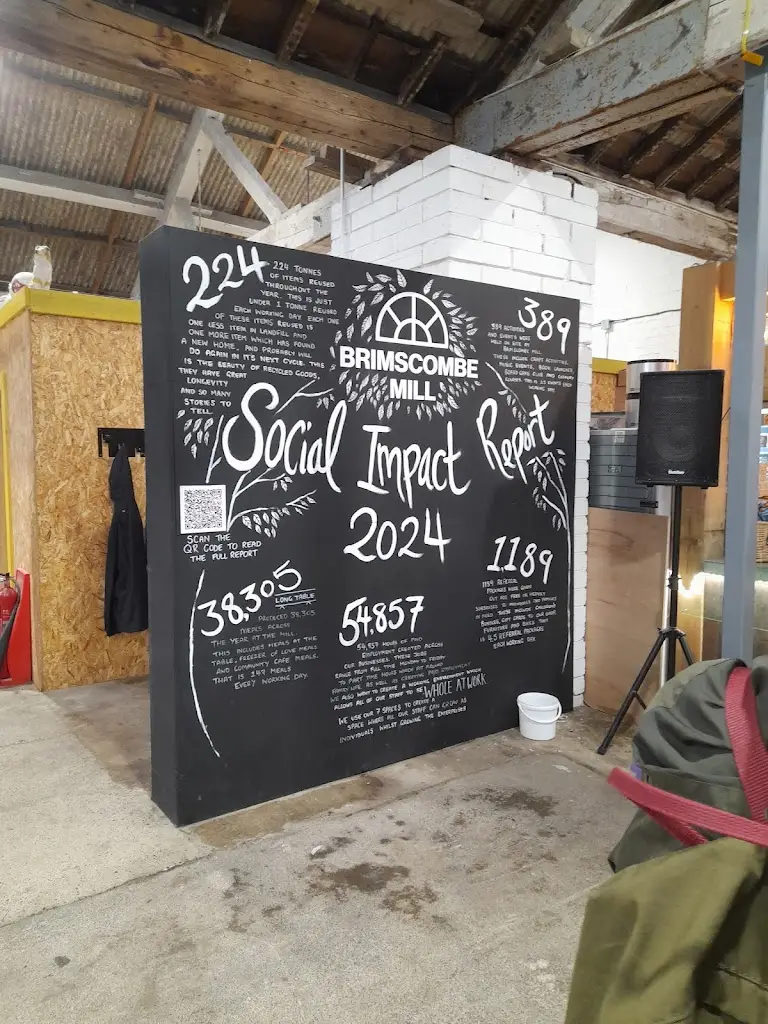 224
224 TONNES
OF ITEMS REUSED
THROUGHOUT THE
YEAR. THIS IS JUST
UNDER 1 TONNE REUSED
EACH WORKING DAY. EACH ONE
OF THESE ITEMS REUSED IS
ONE LESS ITEM IN LANDFILL AND
ONE MORE ITEM WHICH HAS FOUND
A NEW HOME. AND PROBABLY WILL
DO AGAIN IN IT'S NEXT CYCLE. THIS
IS THE BEAUTY OF RECYCLED GOODS,
THEY HAVE GREAT
LONGEVITY
AND SO MANY
STORIES TO
TELL.
BRIMSCOMBE
MILL
389
389 ACTIVITIES
AND EVENTS WERE
HELD ON SITE BY
BRIMSCOMBE MILL.
THESE INCLUDE CRAFT ACTIVITIES,
MUSIC EVENTS, BOOK LAUNCHES,
BOARD GAME CLUB AND
WORKING DAY.
Social Impact Report
2024
SCAN THE
QR CODE TO READ
THE FULL REPORT
38,305
LONG TABLE
PRODUCED 38,305
MEALS ACROSS
THE YEAR AT THE MILL.
THIS INCLUDES MEALS AT THE
TABLE, FREEZER OF LOVE MEALS
AND COMMUNITY CAFE MEALS.
THAT IS 147 MEALS
EVERY WORKING DAY.
54,857
54,857 HOURS OF PAID
EMPLOYMENT CREATED ACROSS
OUR BUSINESSES. THESE JOBS
RANGE FROM FULL TIME MONDAY TO FRIDAY
TO PART TIME HOURS WHICH FIT AROUND
FAMILY LIFE. AS WELL AS CREATING PAID EMPLOYMENT
WE ALSO WANT TO CREATE A WORKING ENVIRONMENT WHICH
ALLOWS ALL OF OUR STAFF TO BE WHOLE AT WORK
WE USE OUR 7 SPACES TO CREATE A
SPACE WHERE ALL OUR STAFF CAN GROW AS
INDIVIDUALS WHILST GROWING THE ENTERPRISES
1189
1189 REFERRAL
PACKAGES WERE GIVEN
OUT
BUNDLES, GIFT CARDS TO OUR
FURNITURE AND BIKES. THAT
IS 4.5 REFERRAL PACKAGES
EACH WORKING DAY.